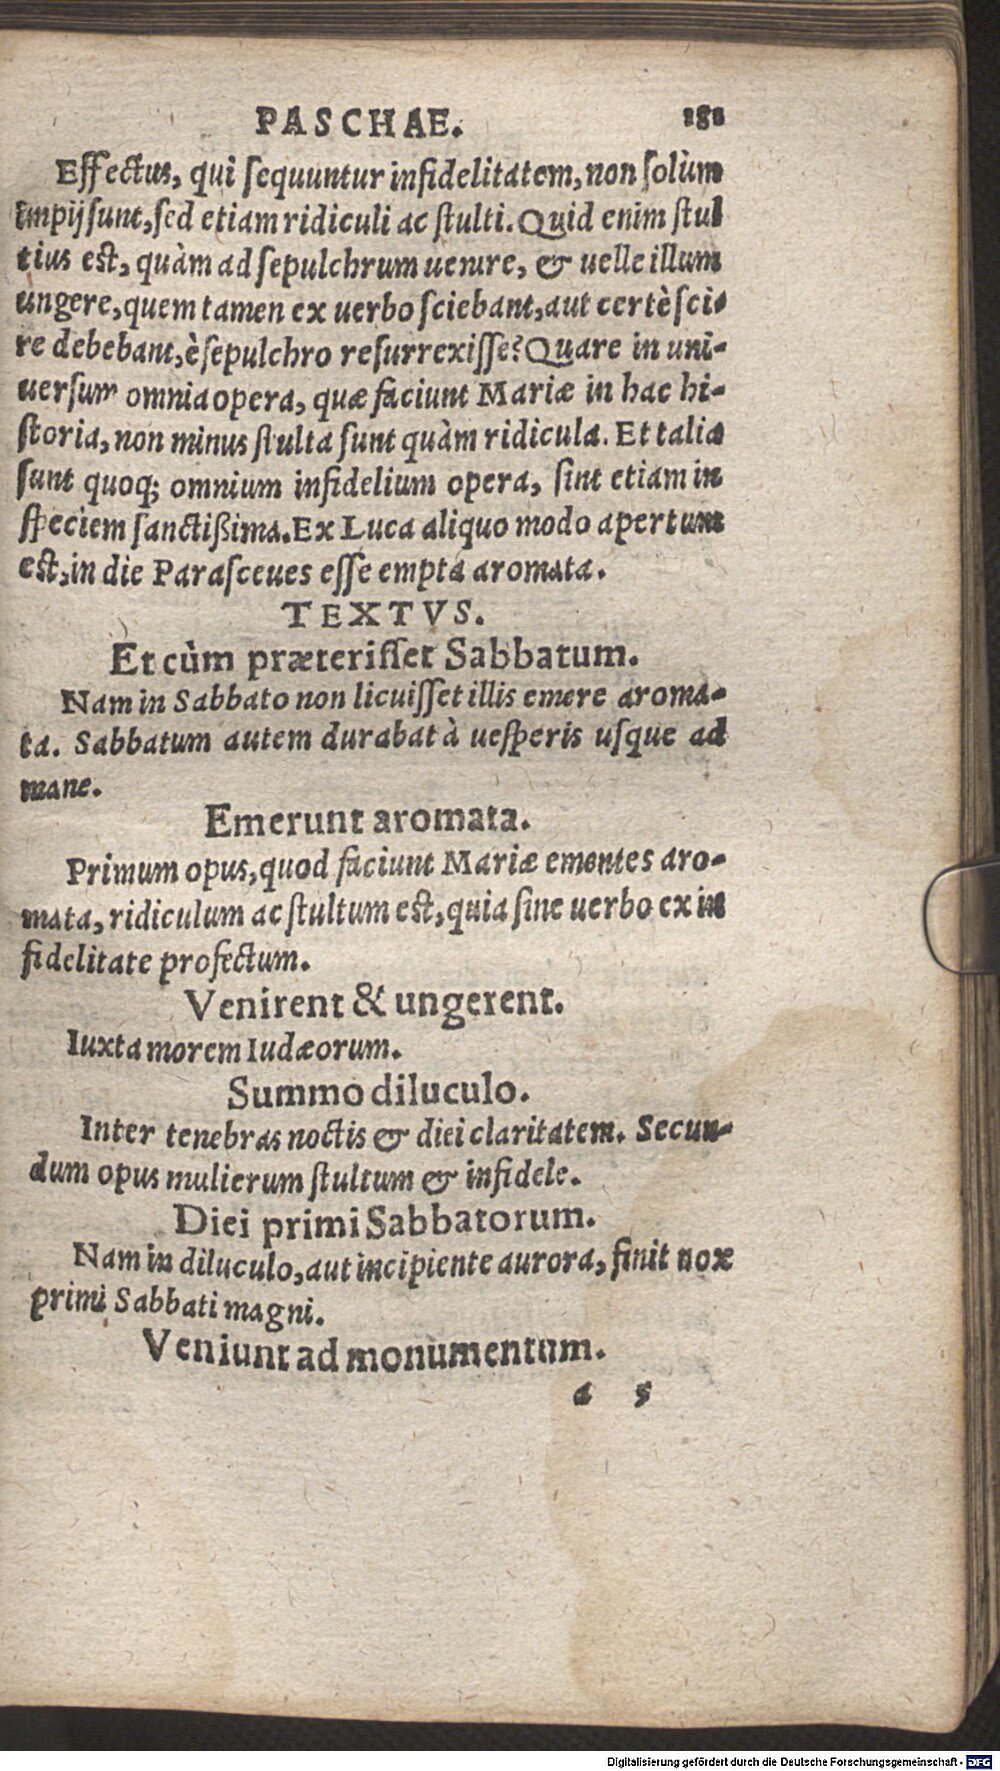 PASCHAE. 181
Effectus, qui sequuntur infidelitatem, non solùm
impij sunt, sed etiam ridiculi ac stulti. Quid enim stul
tius est, quàm ad sepulchrum uenire, & uelle illum
ungere, quem tamen ex uerbo sciebant, aut certè sci-
re debebant, è sepulchro resurrexisse? Quare in uni-
uersum omnia opera, quæ faciunt Mariæ in hac hi-
storia, non minus stulta sunt quàm ridicula. Et talia
sunt quoq; omnium infidelium opera, sint etiam in
speciem sanctißima. Ex Luca aliquo modo apertum
est, in die Parasceues esse empta aromata.
TEXTVS.
Et cùm præterisset Sabbatum.
Nam in Sabbato non licuisset illis emere aroma-
ta. Sabbatum autem durabat à uesperis usque ad
mane.
Emerunt aromata.
Primum opus, quod faciunt Mariæ ementes aro-
mata, ridiculum ac stultum est, quia sine uerbo ex in
fidelitate profectum.
Venirent & ungerent.
Iuxta morem Iudæorum.
Summo diluculo.
Inter tenebras noctis & diei claritatem. Secun-
dum opus mulierum stultum & infidele.
Diei primi Sabbatorum.
Nam in diluculo, aut incipiente aurora, finit nox
primi Sabbati magni.
Veniunt ad monumentum.
a 5
Digitalisierung gefördert durch die Deutsche Forschungsgemeinschaft - DFG